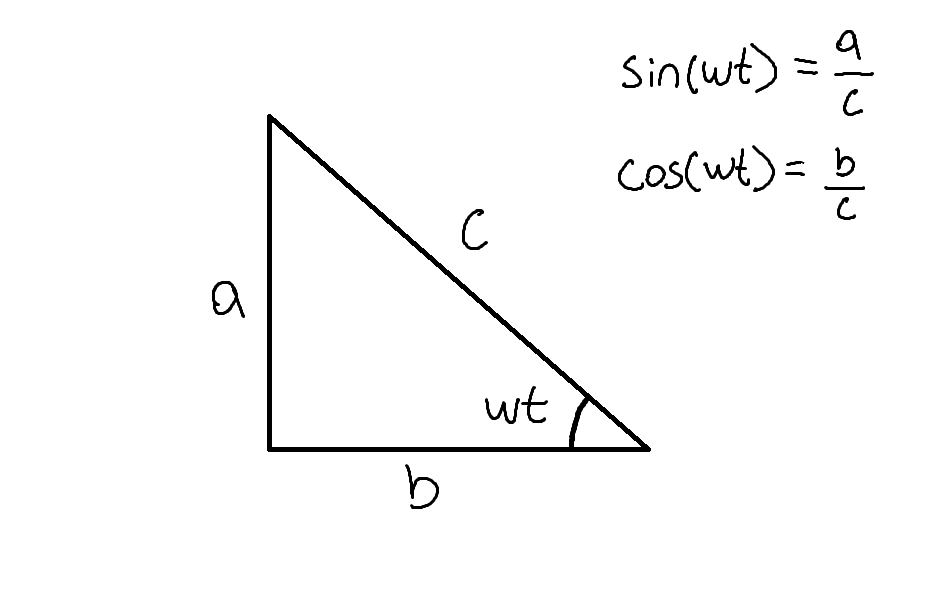 sin(wt) = a/c
cos(wt) = b/c
c
a
wt
b